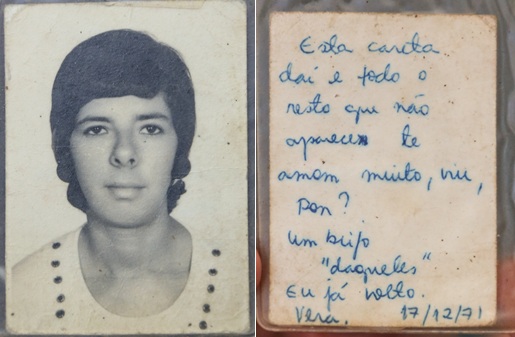 Esta careta
daí e todo o
resto que não
aparecem te
amam muito, viu,
Pon?
um beijo
"daqueles"
Eu já volto.
Vera. 17/12/71